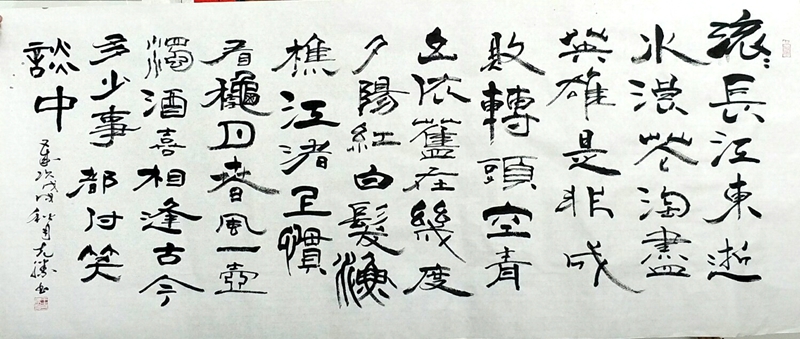 滾々長江東逝
水浪花淘盡
英雄是非成
敗轉頭空青
山依舊在幾度
夕陽紅白髮漁
樵江渚上慣
看穐月春風一壺
濁酒喜相逢古今
多少事都付笑
談中
歲次戊戌秋月